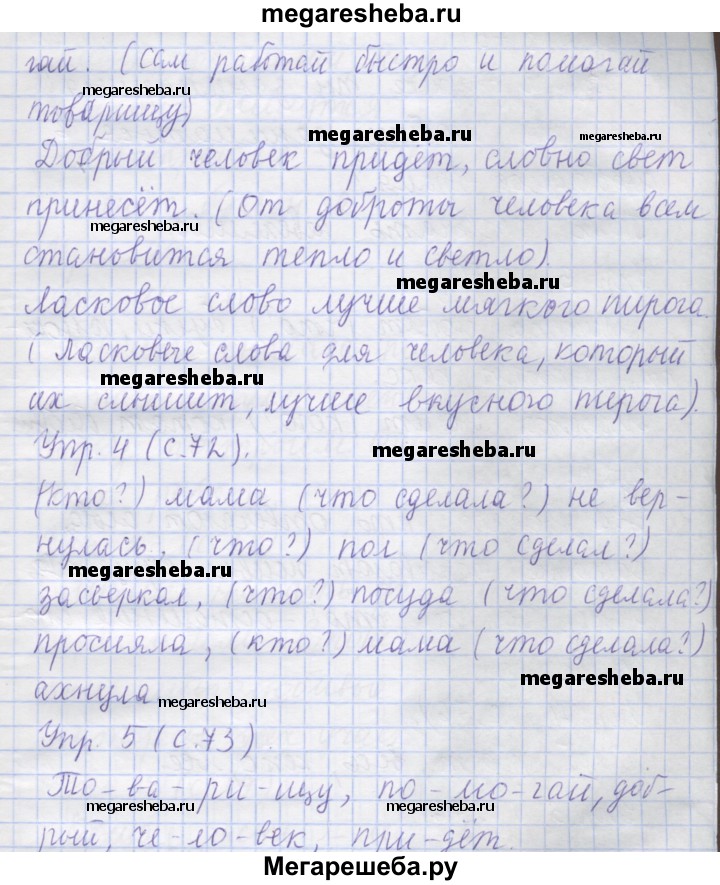 megaresheba.ru
гай. (Сам работай быстро и помогай
megaresheba.ru
товарищу)
megaresheba.ru
megaresheba.ru
Добрый человек придёт, словно свет
принесёт. (От доброты человека всем
megaresheba.ru
становится тепло и светло).
megaresheba.ru
Ласковое слово лучше мягкого пирога.
( Ласковые слова для человека, который
megaresheba.ru
их слышит, лучше вкусного пирога).
Упр. 4 (с. 72).
megaresheba.ru
(Кто?) мама (что сделала?) не вер-
нулась, (что?) пол (что сделал?)
megaresheba.ru
засверкал, (что?) посуда (что сделала?)
просияла, (кто?) мама (что сделала?)
megaresheba.ru
ахнула
megaresheba.ru
Упр. 5 (с. 73).
То-ва-ри-щу, по-мо-гай, доб-
рый, че-ло-век, при-дёт.
Мегарешеба.ру